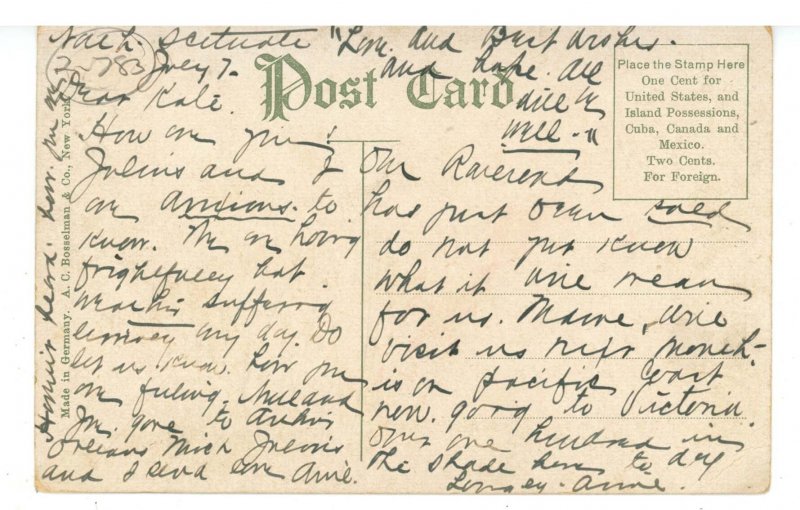 North Scituate "Love and Best wishes.
July 7.
and hope all
will be
well."
Post Card
Place the Stamp Here
One Cent for
United States, and
Island Possessions,
Cuba, Canada and
Mexico.
Two Cents.
For Foreign.
Made in Germany. A. C. Bosselman & Co., New York
Dear Kate.
How are you!
Julius and I
are anxious to
know. We are having
frightfully hot
weather suffering
every day. Do
let us know how you
are feeling.
gone to
Orleans Mich Julius
and I send love
Our Reverend
has just been sold
do not you know
what it will mean
for us. will
visit us next month.
is on Pacific Coast
now. going to Victoria
Over one hundred in
the shade here to day
heard how you